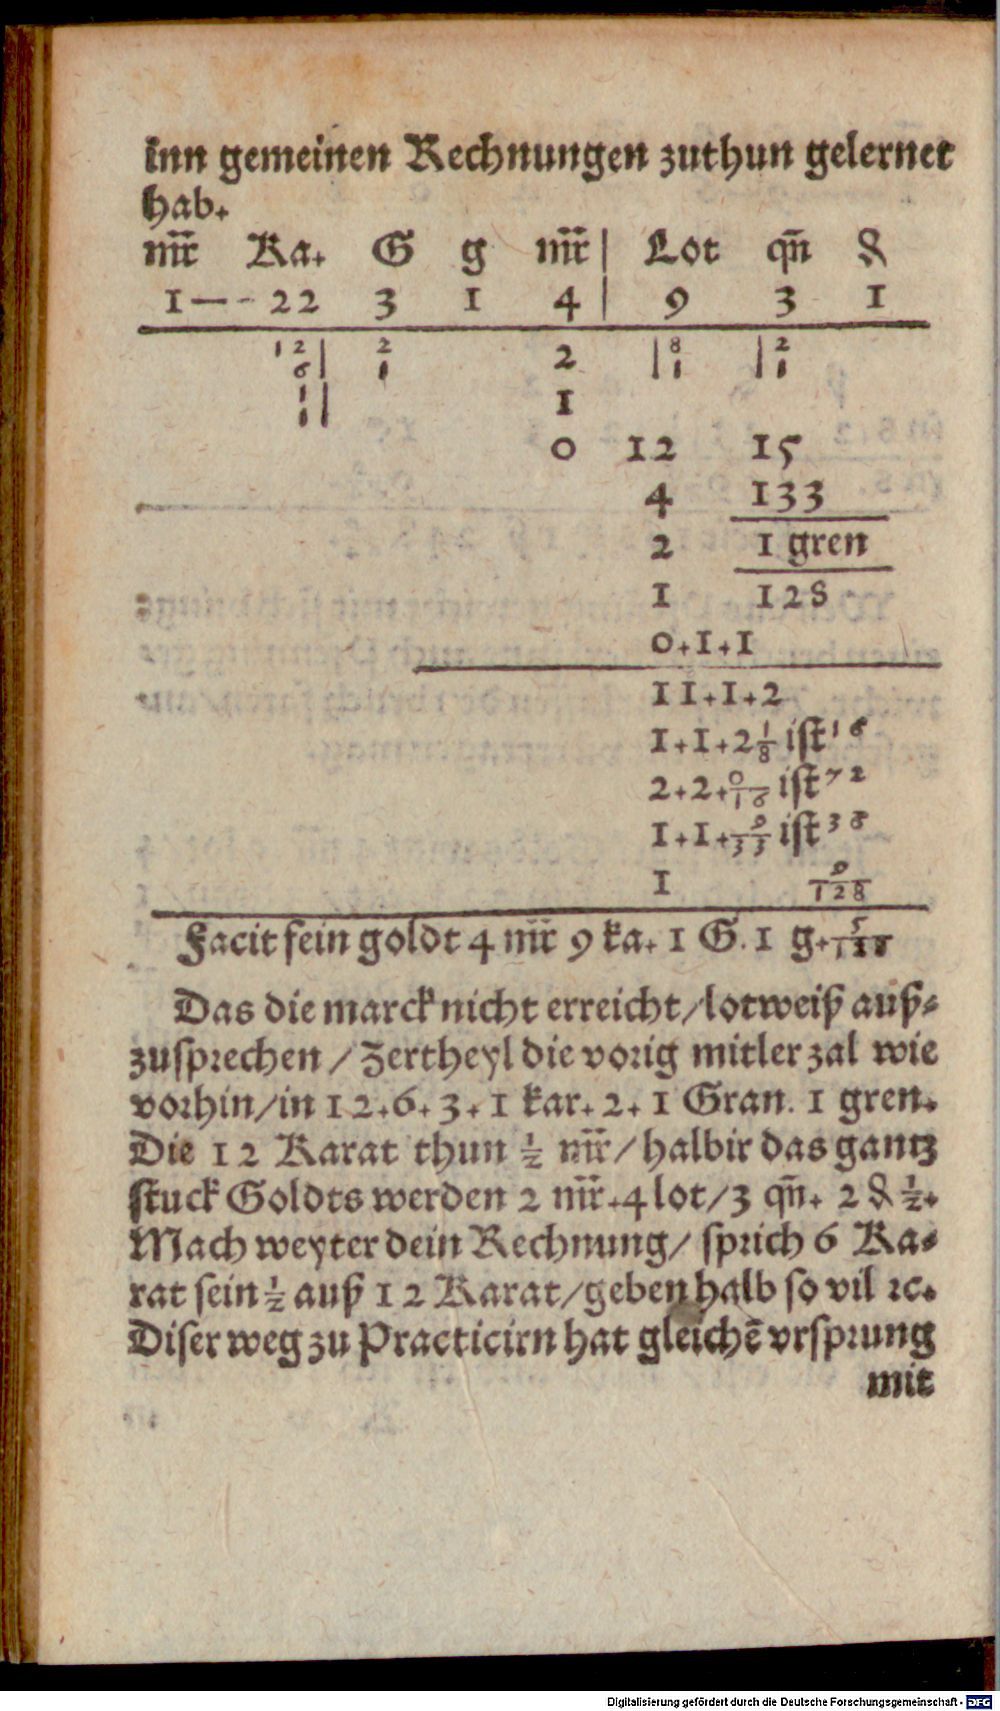 inn gemeinen Rechnungen zuthun gelernet
hab.
mr̃ Ka. G g mr̃ | Lot qñ ₰
1 — - 22 3 1 4 | 9 3 1
12| 2 2 |8 |2
6| 1 |1 |1
1| 1
1|
0 12 15
4 133
2 1 gren
1 128
0.1.1
11.1.2
1.1.2 1/8 ist 16
2.2. 0/16 ist 72
1.1. 9/33 ist 36
1 9/128
Facit fein goldt 4 mr̃ 9 ka. 1 G. 1 g.
Das die marck nicht erreicht/lotweiß auß⸗
zusprechen / Zertheyl die vorig mitler zal wie
vorhin/in 12.6.3.1 kar. 2.1 Gran. 1 gren.
Die 12 Karat thun 1/2 mr̃/halbir das gantz
stuck Goldts werden 2 mr̃.4 lot/3 qñ. 2 ₰ 1/2.
Mach weyter dein Rechnung/ sprich 6 Ka⸗
rat sein 1/2 auß 12 Karat/geben halb so vil ꝛc.
Diser weg zu Practicirn hat gleichẽ vrsprung
mit
Digitalisierung gefördert durch die Deutsche Forschungsgemeinschaft - DFG